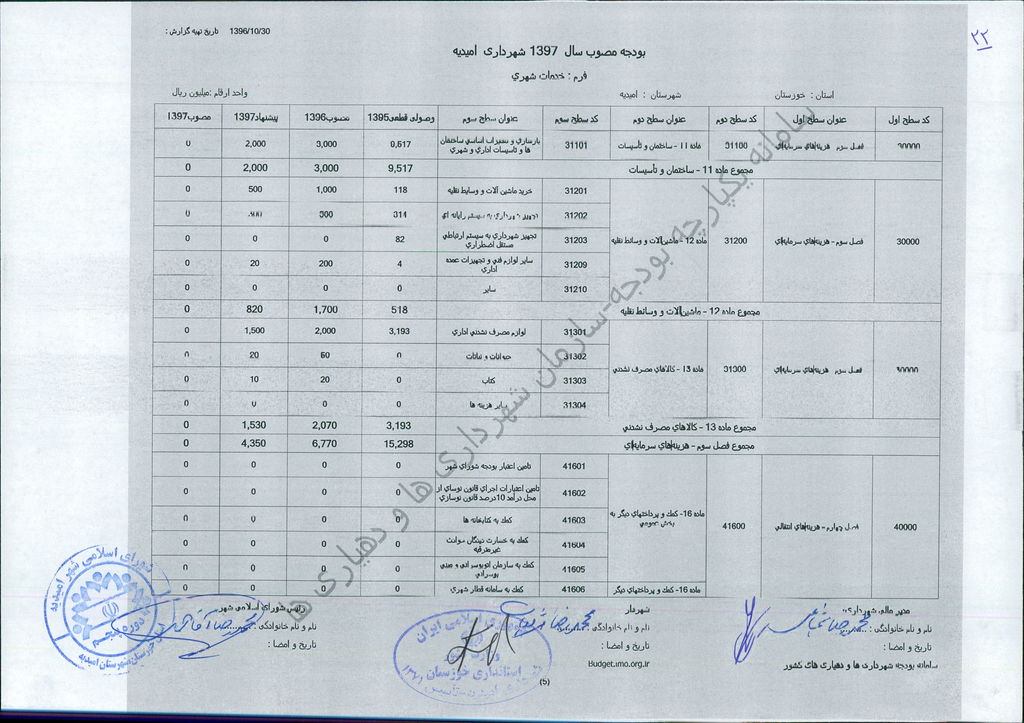 ۲۲
تاریخ تهیه گزارش : 1396/10/30
بودجه مصوب سال 1397 شهرداری امیدیه
فرم : خدمات شهري
استان : خوزستان شهرستان : امیدیه واحد ارقام :میلیون ریال
کد سطح اول عنوان سطح اول کد سطح دوم عنوان سطح دوم کد سطح سوم عنوان سطح سوم وصولی قطعی1395 مصوب1396 پیشنهاد1397 مصوب1397
30000 فصل سوم - هزینه‌های سرمایه‌ای 31100 ماده 11 - ساختمان و تأسیسات 31101 بازسازی و تعمیرات اساسی ساختمان ها و تاسیسات اداری و شهری 9,517 3,000 2,000 0
مجموع ماده 11 - ساختمان و تأسیسات 9,517 3,000 2,000 0
30000 فصل سوم - هزینه‌های سرمایه‌ای 31200 ماده 12 - ماشین‌آلات و وسائط نقلیه
31201 خرید ماشین آلات و وسایط نقلیه 118 1,000 500 0
31202 تجهیز شهرداری به سیستم رایانه ای 314 300 0
31203 تجهیز شهرداری به سیستم ارتباطی مستقل اضطراری 82 0 0 0
31209 سایر لوازم فنی و تجهیزات عمده اداری 4 200 20 0
31210 سایر 0 0 0 0
مجموع ماده 12 - ماشین‌آلات و وسائط نقلیه 518 1,700 820 0
30000 فصل سوم - هزینه‌های سرمایه‌ای 31300 ماده 13 - کالاهای مصرف نشدنی
31301 لوازم مصرف نشدنی اداری 3,193 2,000 1,500 0
31302 حیوانات و نباتات 0 50 20 0
31303 کتاب 0 20 10 0
31304 سایر هزینه ها 0 0 0 0
مجموع ماده 13 - کالاهای مصرف نشدنی 3,193 2,070 1,530 0
مجموع فصل سوم - هزینه‌های سرمایه‌ای 15,298 6,770 4,350 0
40000 فصل چهارم - هزینه‌های انتقالی 41600 ماده 16- کمک و پرداختهای دیگر به بخش عمومی
41601 تامین اعتبار بودجه شورای شهر 0 0 0 0
41602 تامین اعتبارات اجرای قانون نوسازی از محل درآمد 10درصد قانون نوسازی 0 0 0 0
41603 کمک به کتابخانه ها 0 0 0 0
41604 کمک به خسارت دیدگان حوادث غیرمترقبه 0 0 0 0
41605 کمک به سازمان اتوبوسرانی و مینی بوسرانی 0 0 0 0
ماده 16- کمک و پرداختهای دیگر 41606 کمک به سامانه قطار شهری 0 0 0 0
سامانه یکپارچه بودجه-سازمان شهرداری ها و دهیاری ها
مدیر مالی شهرداری: شهردار رئیس شورای اسلامی شهر
نام و نام خانوادگی : نام و نام خانوادگی : محمدرضا نام و نام خانوادگی : محمدرضا
تاریخ و امضا : تاریخ و امضا : تاریخ و امضا :
سامانه بودجه شهرداری ها و دهیاری های کشور Budget.imo.org.ir
(5)
شورای اسلامی شهر امیدیه
دوره پنجم
خوزستان شهرستان امیدیه
جمهوری اسلامی ایران
استانداری خوزستان